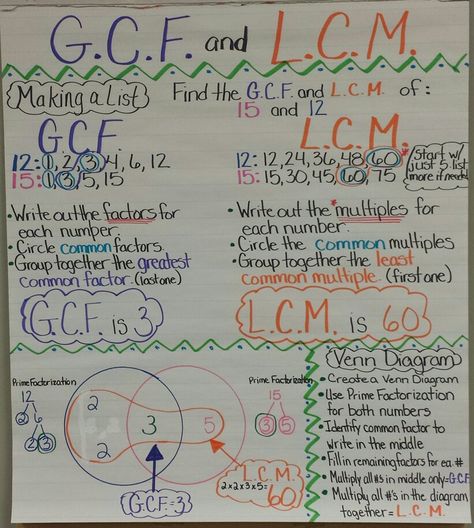 G.C.F. and L.C.M.
Making a List
Find the G.C.F. and L.C.M. of:
15 and 12
G.C.F.
12: 1, 2, 3, 4, 6, 12
15: 1, 3, 5, 15
• Write out the factors for
each number.
• Circle common factors.
• Group together the greatest
common factor. (last one)
G.C.F. is 3
L.C.M.
12: 12, 24, 36, 48, 60 *
15: 15, 30, 45, 60, 75
Start w/
just 5. list
more if needed
• Write out the *multiples for
each number.
• Circle the common multiples
• Group together the least
common multiple. (first one)
L.C.M. is 60
Prime Factorization
12
2 6
2 3
2
2
3
5
Prime Factorization
15
3 5
G.C.F. = 3
L.C.M.
2 x 2 x 3 x 5 =
60
Venn Diagram
• Create a Venn Diagram
• Use Prime Factorization
for both numbers
• Identify common factor to
write in the middle
• Fill in remaining factors for ea. #
• Multiply all #s in middle only = G.C.F
• Multiply all #'s in the diagram
together = L.C.M.